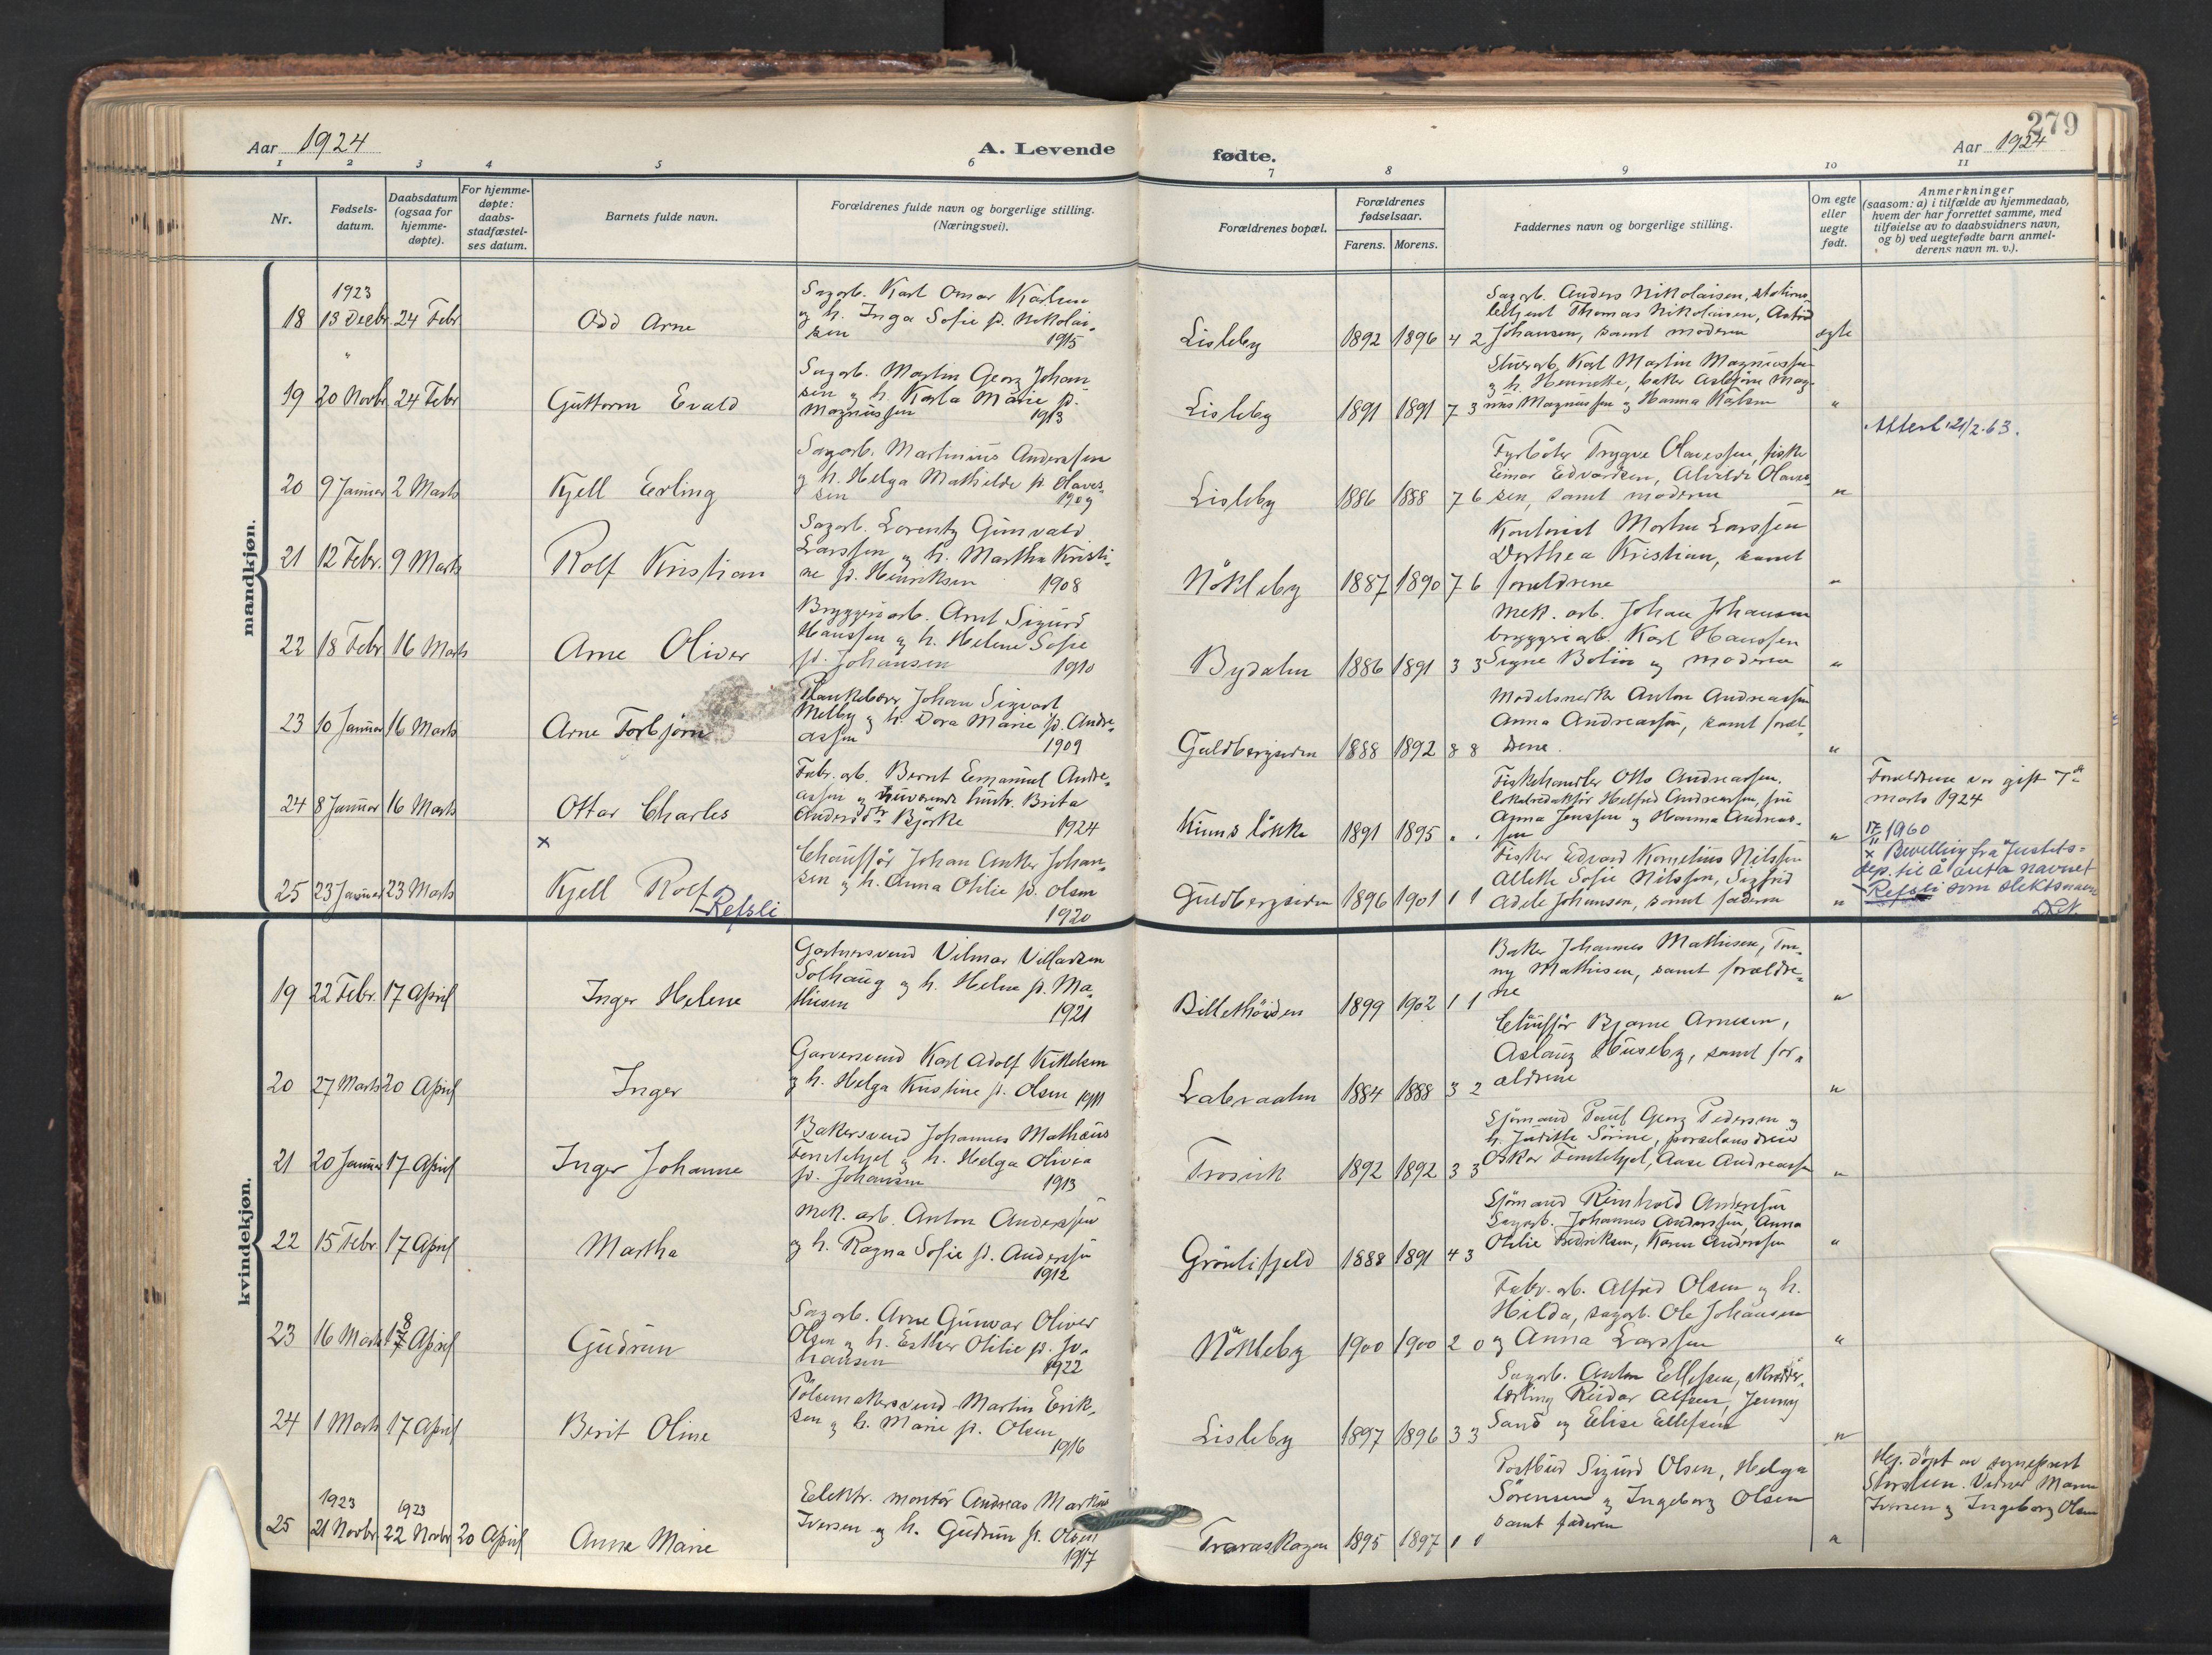 Aar 1924
A. Levende
fødte.
279
Aar 1924
1 2 3 4 5 6 7 8 9 10 11
Nr.
Fødsels-
datum.
Daabsdatum
(ogsaa for
hjemme-
døpte).
For hjemme-
døpte:
daabs-
stadfæstel-
ses datum.
Barnets fulde navn.
Forældrenes fulde navn og borgerlige stilling.
(Næringsvei).
Forældrenes bopæl.
Forældrenes
fødselsaar.
Farens. Morens.
Faddernes navn og borgerlige stilling.
Om egte
eller
uegte
født.
Anmerkninger
(saasom: a) i tilfælde av hjemmedaab,
hvem der har forrettet samme, med
tilføielse av to daabsvidners navn,
og b) ved uegtefødte barn anmel-
derens navn m. v.).
mandkjøn.
1923
18 13 Decbr 24 Febr
Odd Arne
Sagarb. Karl Omar Karlsen
og h. Inga Sofie f. Nikolai-
sen
1915
Lisleby 1892 1896 4 2
Sagarb. Anders Nikolaisen, stations-
betjent Thomas Nikolaisen, Astrid
Johansen, samt moderen
egte
"
19 20 Novbr 24 Febr
Guttorm Evald
Sagarb. Martin Georg Johan
sen og h. Karla Marie f.
Magnussen 1913
Lisleby 1891 1891 7 3
Stuerarb. Karl Martin Magnussen
og h. Henriette, baker Asbjørn Mag-
nus Magnussen og Hanna Karlsen
"
Attest 21/2.63.
20 9 Januar 2 Marts
Kjell Erling
Sagarb. Martinius Anderssen
og h. Helga Mathilde f. Olaves-
sen 1909
Lisleby 1886 1888 7 6
Fyrbøter Trygve Olavessen, fisker
Einar Edvardsen, Alvilde Olaves-
sen, samt moderen
"
21 12 Febr. 9 Marts
Rolf Kristian
Sagarb. Lorentz Gunvald
Larssen og h. Martha Kristi-
ne f. Henriksen 1908
Nökleby 1887 1890 7 6
Morten Larssen
Dorthea Kristian, samt
forældrene
"
22 18 Febr 16 Marts
Arne Oliver
Bryggeriarb. Arnt Sigurd
Hanssen og h. Helene Sofie
f. Johansen 1910
Bydalen 1886 1891 3 3
Mek. arb. Johan Johansen
bryggeriarb. Karl Hanssen
Signe Bolin og moderen
"
23 10 Januar 16 Marts
Arne Torbjörn
Plankebærer Johan Sigvart
Melby og h. Dora Marie f. Andre-
assen 1909
Guldbergsiden 1888 1892 8 8
Modelsnekker Anton Andreassen
Anna Andreassen, samt foræl-
drene.
"
24 8 Januar 16 Marts
Ottar Charles
Fabr. arb. Bernt Emanuel Andre-
assen og nuværende hustr. Brita
Andersdtr Bjørke 1924
Kiuns løkke 1891 1895 " "
Fiskehandler Otto Andreassen,
lokalredaktör Helfred Andreassen, frú
Anna Jenssen og Hanna Andreas-
sen
"
Forældrene var gift 7de
marts 1924
×
25 23 Januar 23 Marts
Kjell Rolf
Refsli
Chauffør Johan Anker Johan-
sen og h. Anna Otilie f. Olsen
1920
Guldbergsiden 1896 1901 1 1
Fisker Edvard Kornelius Nilssen
Allette Sofie Nilssen, Sigfrid
Adele Johansen, samt faderen
"
17/11 1960
× Bevilling fra Justits-
dep. til å anta navnet
Refsli som slektsnavn
kvindekjøn.
19 22 Febr. 17 April
Inger Helene
Gartnersvend Vilmar Villadsen
Solhaug og h. Helene f. Ma-
thisen 1921
Billethöiden 1899 1902 1 1
Baker Johannes Mathisen, Ton-
ny Mathisen, samt forældre-
ne
"
20 27 Marts 20 April
Inger
Garversvend Karl Adolf Kittelsen
og h. Helga Kristine f. Olsen 1911
Labraaten 1884 1888 3 2
Chauffør Bjarne Arnesen,
Aslaug Huseby, samt for-
ældrene
"
21 20 Januar 17 April
Inger Johanne
Bakersvend Johannes Mathæus
Femtehjel og h. Helga Olivea
f. Johansen 1913
Trosvik 1892 1892 3 3
Sjømand Paul Georg Pedersen og
h. Judithe Sørine, porselensdreier
Oskar Femtehjel, Aase Andreassen
"
22 15 Febr. 17 April
Martha
Mek. arb. Anton Anderssen
og h. Ragna Sofie f. Anderssen
1912
Grönlifjeld 1888 1891 4 3
Sjømand Reinhold Anderssen
Sagarb. Johannes Anderssen, Anna
Otilie Fredriksen, Karen Anderssen
"
23 16 Marts 18 April
Gudrun
Sagarb. Arne Gunvar Oliver
Olsen og h. Esther Otilie f. Jo-
hansen 1922
Nökleby 1900 1900 2 0
Fabr. arb. Alfred Olsen og h.
Hilda, sagarb. Ole Johansen
og Anna Larssen
"
24 1 Marts 17 April
Berit Oline
Pølsemakersvend Martin Erik-
sen og h. Marie f. Olsen
1916
Lisleby 1897 1896 3 3
Sagarb. Anton Ellefsen, skrædder-
lærling Reidar Alfsen, Jenny
Sand og Elise Ellefsen
"
1923 1923
25 21 Novbr. 22 Novbr 20 April
Anne Marie
Elektr. montør Andreas Markus
Iversen og h. Gudrun f. Olsen
1917
Traraskogen 1895 1897 1 1
Postbud Sigurd Olsen, Helga
Sørensen og Ingeborg Olsen
samt faderen
"
Hj. döpt av sogneprest
Storsteen. Vidner Maren
Iversen og Ingeborg Olsen